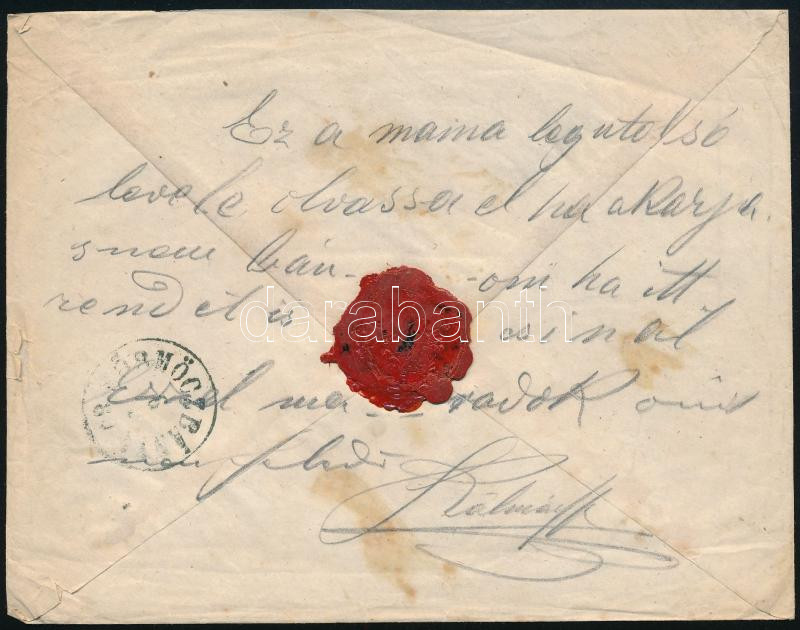 Ez a mama legutolsó
levele olvassa el ha akarja.
s nem bán- -om ha itt
rendet is csinál
Ezzel ma- -radok
Kálmán
KÖRMÖCZBÁNYA
darabanth